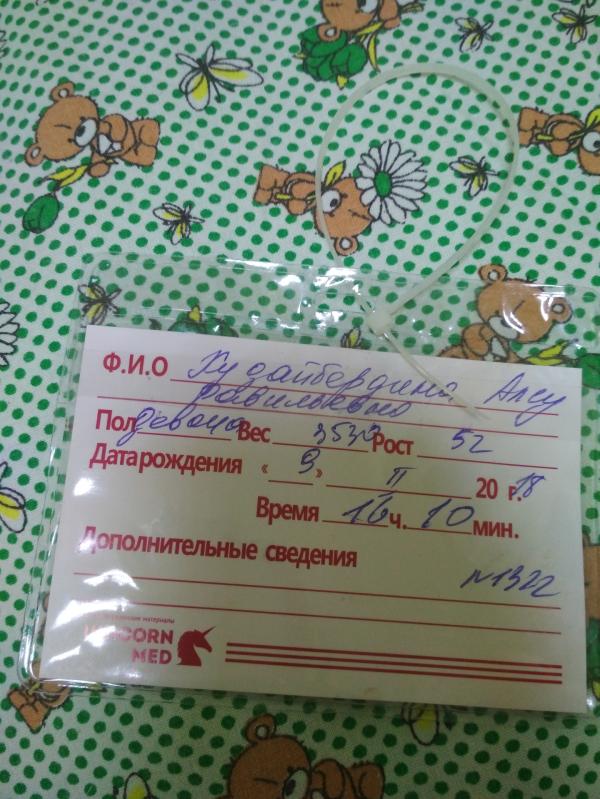 Ф.И.О Худайбердина Алсу
равильевна
Пол девочка Вес 3530 Рост 52
Дата рождения « 9 » II 20 18 г.
Время 16 ч. 10 мин.
Дополнительные сведения
№1322
материалы
UNICORN
MED